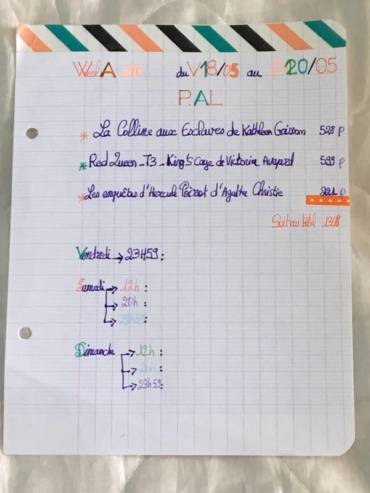 Week A du V18/05 au D20/05
PAL
* La Colline aux Esclaves de Kathleen Grissom 528 p
* Red Queen _ T3 _ King's Cage de Victoria Aveyard 599 p
* Les enquêtes d'Hercule Poirot d'Agatha Christie p
Soit au total
Vendredi → 23H59 :
Samedi → 12h :
→ 20h :
→ 23H59 :
Dimanche → 12h :
→ :
→ 23H59 :